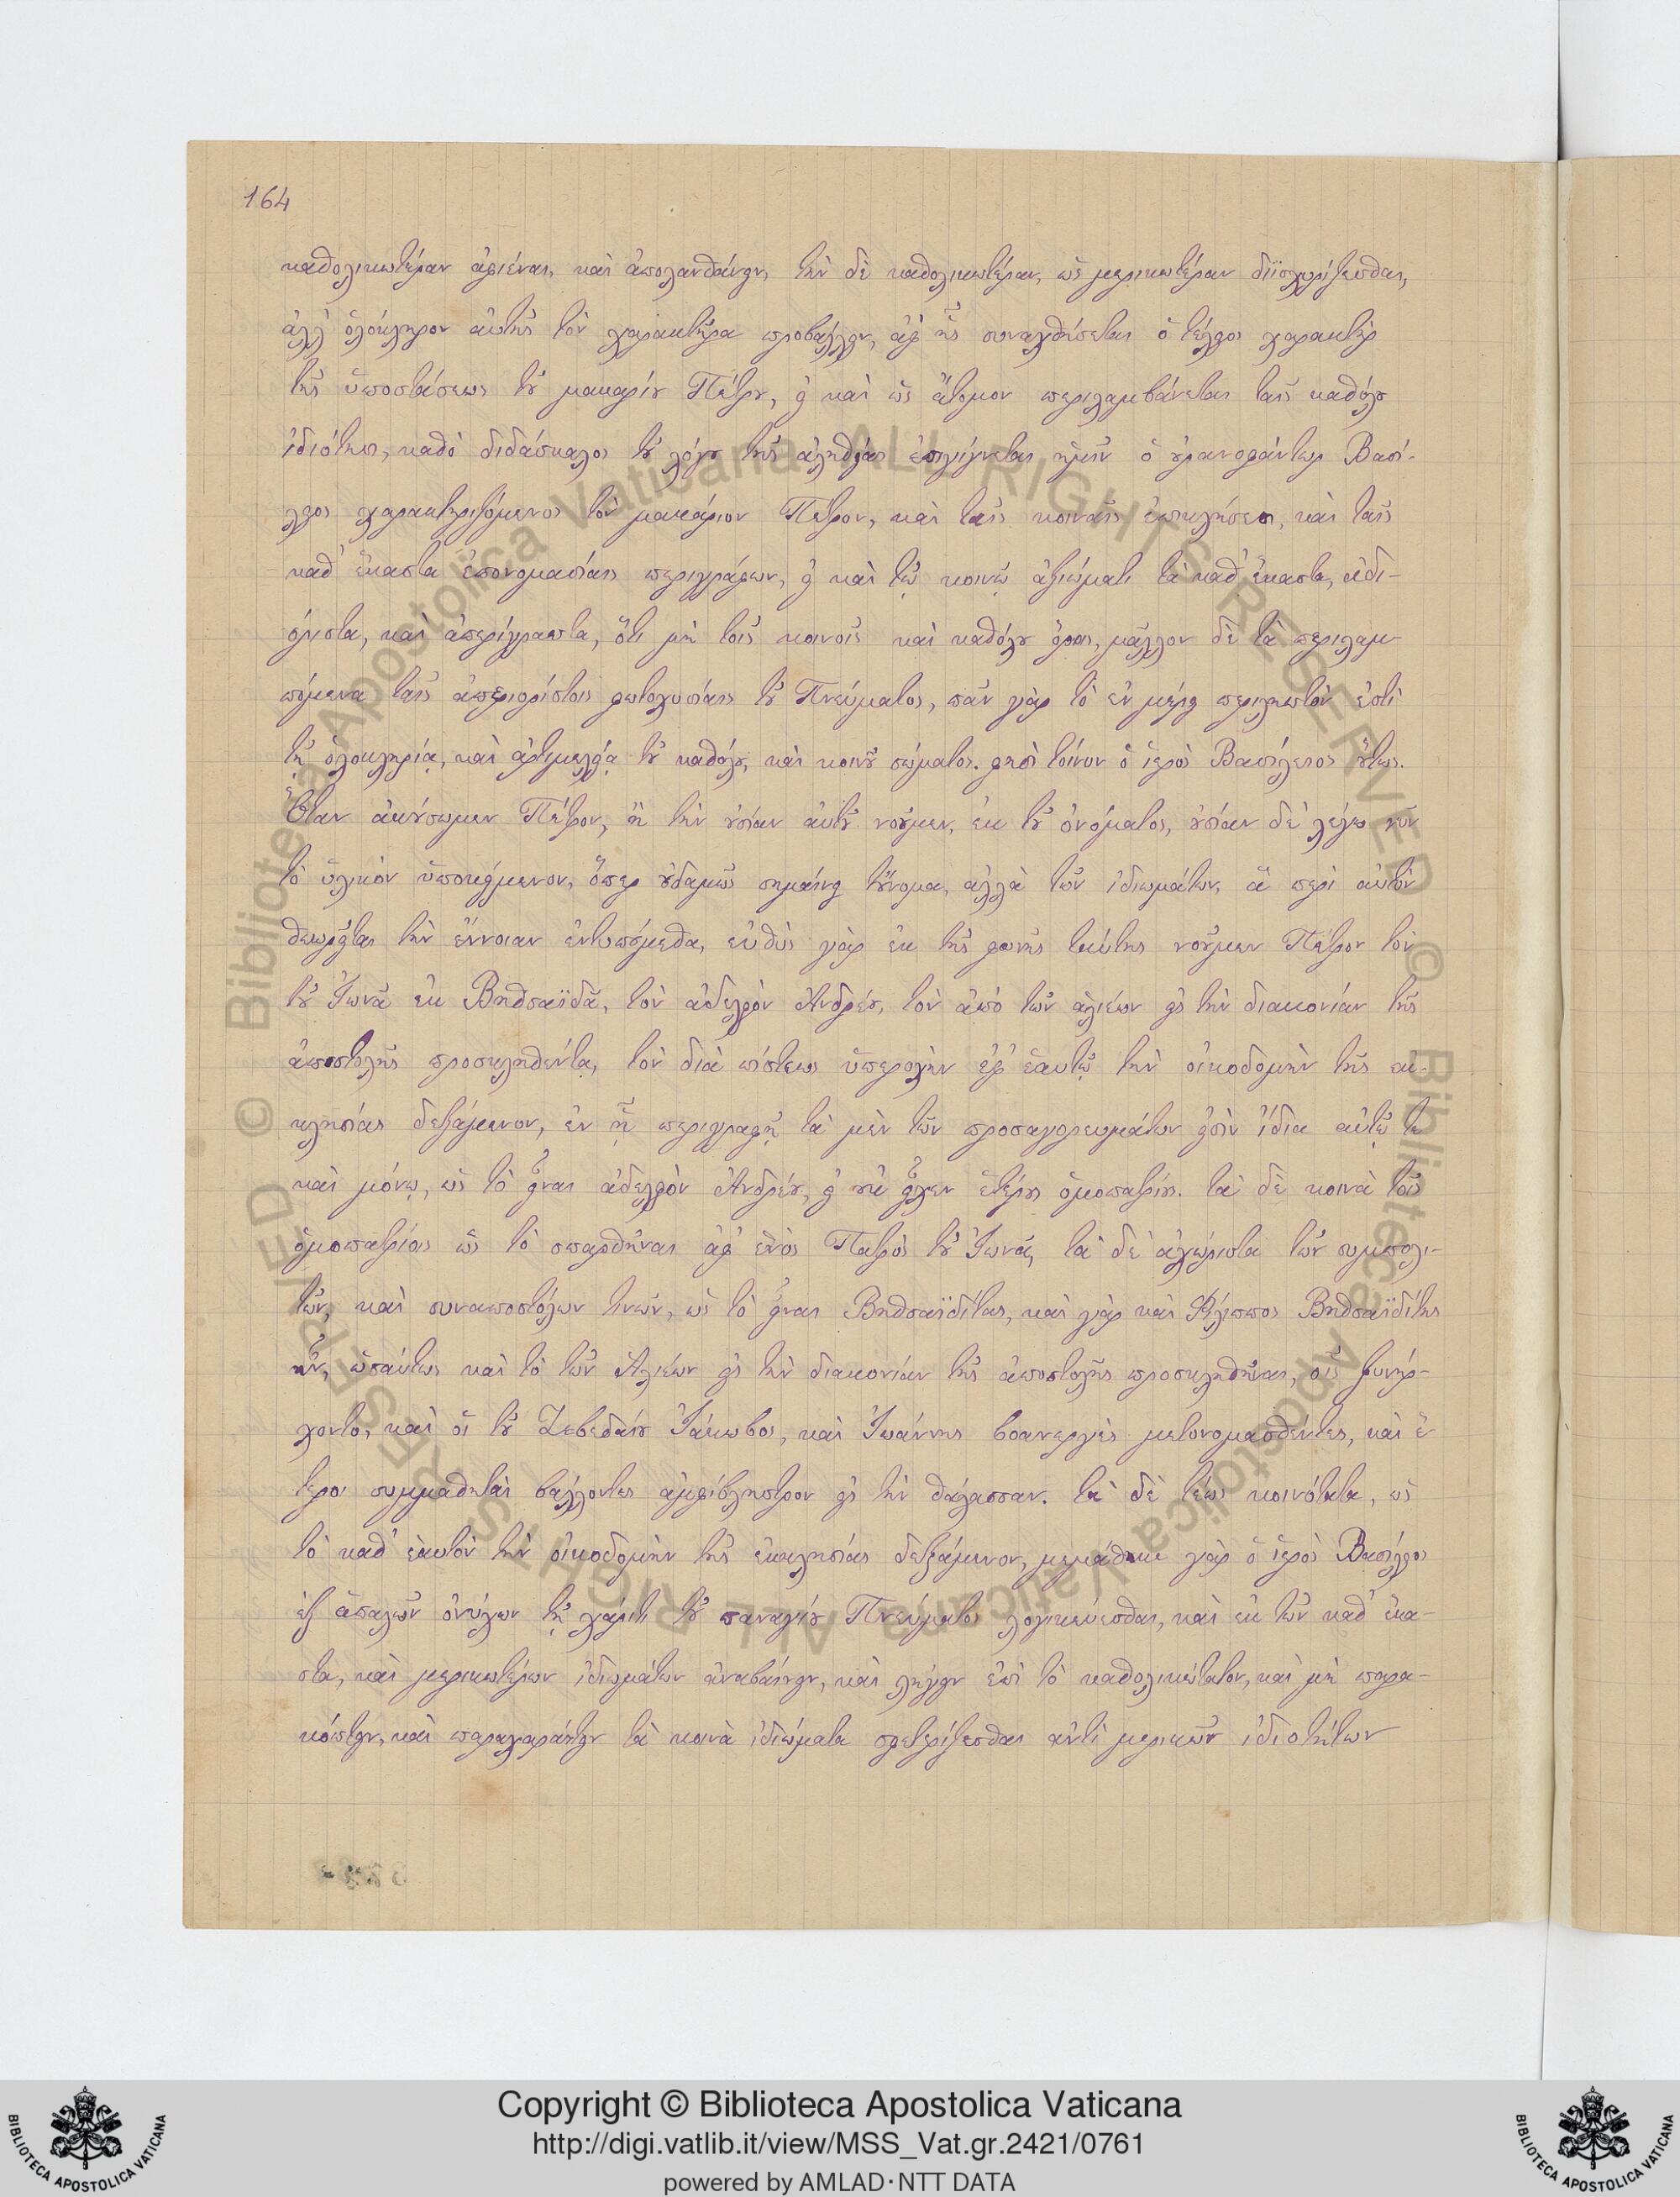 164
καθολικωτέραν ἀφιέναι, καὶ ἀπολανθάνειν, τὴν δὲ καθολικωτέραν, ὡς μερικωτέραν διϊσχυρίζεσθαι,
ἀλλ' ὁλόκληρον αὐτῆς τὸν χαρακτῆρα προβάλλειν, ἀφ' ἧς συναχθήσεται ὁ τέλειος χαρακτὴρ
τῆς ὑποστάσεως τοῦ μακαρίου Πέτρου, εἰ καὶ ὡς ἄτομον περιλαμβάνεται ταῖς καθόλου
ἰδιότησι, καθὸ διδάσκαλος τοῦ λόγου τῆς ἀληθείας ἐπιγίγνεται ἡμῖν ὁ οὐρανοφάντωρ Βασί-
λειος χαρακτηριζόμενος τὸν μακάριον Πέτρον, καὶ ταῖς κοιναῖς ἐπικλήσεσι, καὶ ταῖς
καθ' ἕκαστα ἐπονομασίαις περιγράφων, εἰ καὶ τῷ κοινῷ ἀξιώματι τὰ καθ' ἕκαστα, ἀδι-
όριστα, καὶ ἀπερίγραπτα, ὅτι μὴ τοῖς κοινοῖς καὶ καθόλου ὅροις, μᾶλλον δὲ τὰ περιλαμ-
πόμενα ταῖς ἀπεριορίστοις φωτοχυσίαις τοῦ Πνεύματος, πᾶν γὰρ τὸ ἐν μέρει περιληπτόν ἐστι
τῇ ὁλοκληρίᾳ, καὶ ἀρτιμελείᾳ τοῦ καθόλου, καὶ κοινοῦ σώματος. φησὶ τοίνυν ὁ ἱερὸς Βασίλειος οὕτως.
Ὅταν ἀκούσωμεν Πέτρον, οὐ τὴν οὐσίαν αὐτοῦ νοοῦμεν, ἐκ τοῦ ὀνόματος, οὐσίαν δὲ λέγω νῦν
τὸ ὑλικὸν ὑποκείμενον, ὅπερ οὐδαμῶς σημαίνει τοὔνομα, ἀλλὰ τῶν ἰδιωμάτων, ἃ περὶ αὐτὸν
θεωρεῖται τὴν ἔννοιαν ἐντυπούμεθα, εὐθὺς γὰρ ἐκ τῆς φωνῆς ταύτης νοοῦμεν Πέτρον τὸν
τοῦ Ἰωνᾶ ἐκ Βηθσαϊδᾶ, τὸν ἀδελφὸν Ἀνδρέου, τὸν ἀπὸ τῶν ἁλιέων εἰς τὴν διακονίαν τῆς
ἀποστολῆς προσκληθέντα, τὸν διὰ πίστεως ὑπεροχὴν ἐφ' ἑαυτῷ τὴν οἰκοδομὴν τῆς ἐκ-
κλησίας δεξάμενον, ἐν ᾗ περιγραφῇ τὰ μὲν τῶν προσαγορευμάτων εἰσὶν ἴδια αὐτῷ τε
καὶ μόνῳ, ὡς τὸ εἶναι ἀδελφὸν Ἀνδρέου, εἰ οὐκ εἶχεν ἑτέρους ὁμοπατρίους. τὰ δὲ κοινὰ τοῖς
ὁμοπατρίοις ὡς τὸ σπαρθῆναι ἀφ' ἑνὸς Πατρὸς τοῦ Ἰωνᾶ, τὰ δὲ ἀχώριστα τῶν συμπολι-
τῶν, καὶ συναποστόλων τινῶν, ὡς τὸ εἶναι Βηθσαϊδίτας, καὶ γὰρ καὶ Φίλιππος Βηθσαϊδίτης
ἦν, ὡσαύτως καὶ τὸ τῶν Ἁλιέων εἰς τὴν διακονίαν τῆς ἀποστολῆς προσκληθῆναι, οἷς συνήρ-
χοντο, καὶ οἱ τοῦ Ζεβεδαίου Ἰάκωβος, καὶ Ἰωάννης βοανεργὲς μετονομασθέντες, καὶ ἕ-
τεροι συμμαθηταὶ βάλλοντες ἀμφίβληστρον εἰς τὴν θάλασσαν. τὰ δὲ τέως κοινότατα, ὡς
τὸ καθ' ἑαυτὸν τὴν οἰκοδομὴν τῆς ἐκκλησίας δεξάμενον, μεμάθηκε γὰρ ὁ ἱερὸς Βασίλειος
ἐξ ἁπαλῶν ὀνύχων τῇ χάριτι τοῦ παναγίου Πνεύματος λογικεύεσθαι, καὶ ἐκ τῶν καθ' ἕκα-
στα, καὶ μερικωτέρων ἰδιωμάτων ἀναβαίνειν, καὶ λήγειν ἐπὶ τὸ καθολικώτατον, καὶ μὴ παρα-
κόπτειν, καὶ παραχαράττειν τὰ κοινὰ ἰδιώματα σφετερίζεσθαι ἀντὶ μερικῶν ἰδιοτήτων
Copyright © Biblioteca Apostolica Vaticana
http://digi.vatlib.it/view/MSS_Vat.gr.2421/0761
powered by AMLAD·NTT DATA